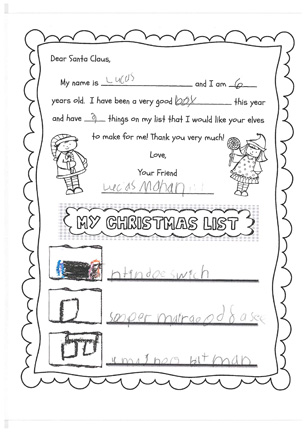 Dear Santa Claus,
My name is Lucas and I am 6
years old. I have been a very good boy this year
and have 3 things on my list that I would like your elves
to make for me! Thank you very much!
Love,
Your Friend
Lucas Mohan
MY CHRISTMAS LIST
nintindoo swich
sooper
man